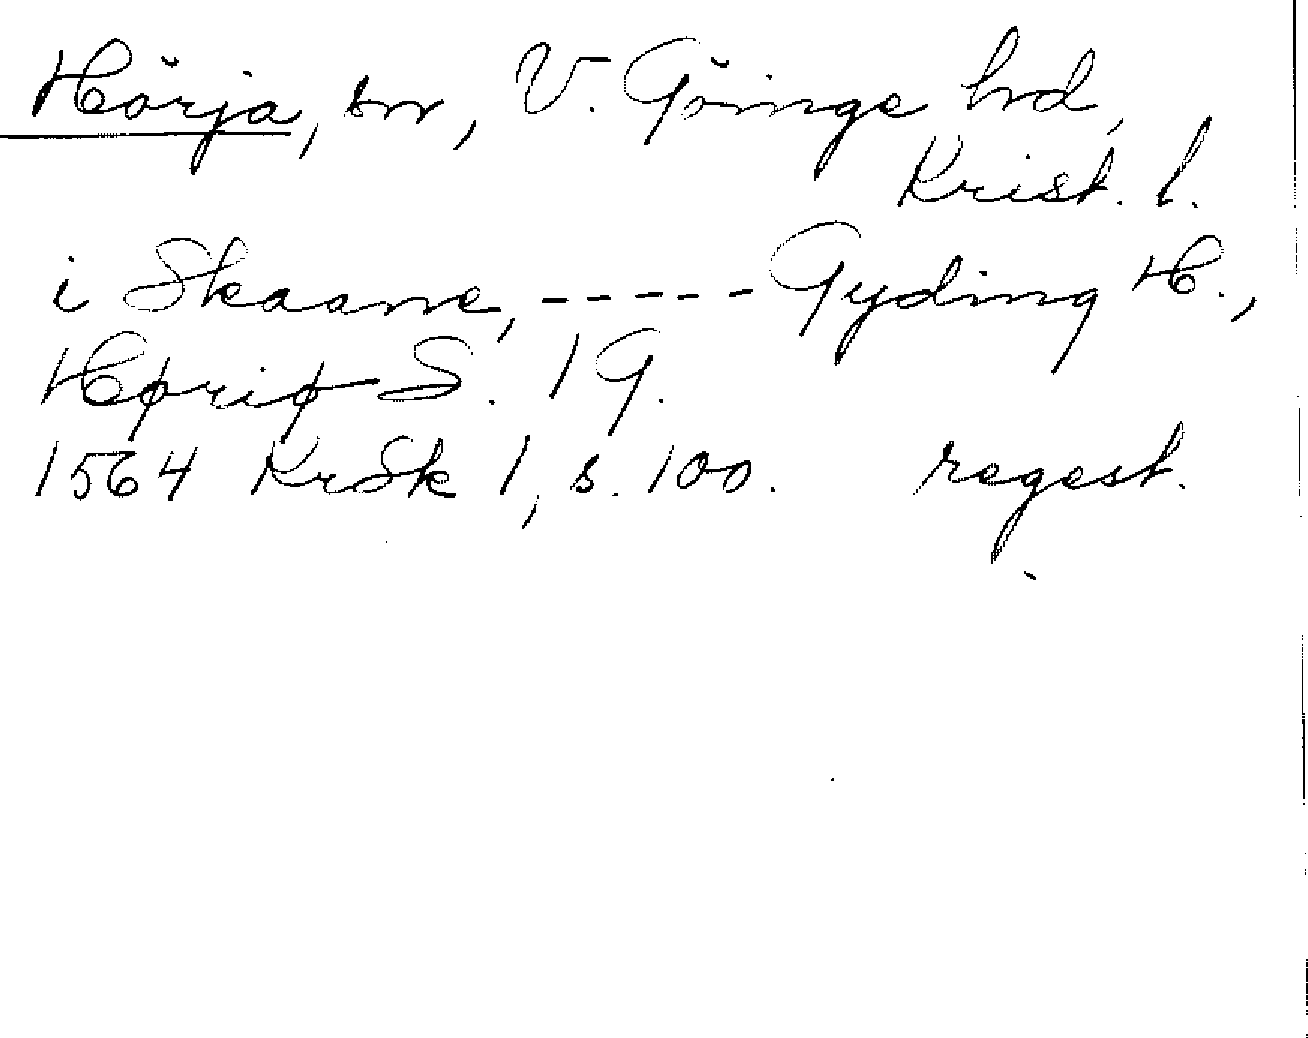 Hörja, sn, V. Göinge hrd,
Krist. l.
i Skaane, ----- Gyding H.,
Høriø S. 1 G.
1564 KrSk 1, s. 100. regest.